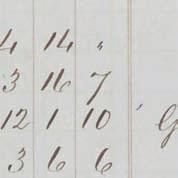 4 14 "
3 16 7
12 1 10 ' G
3 6 6